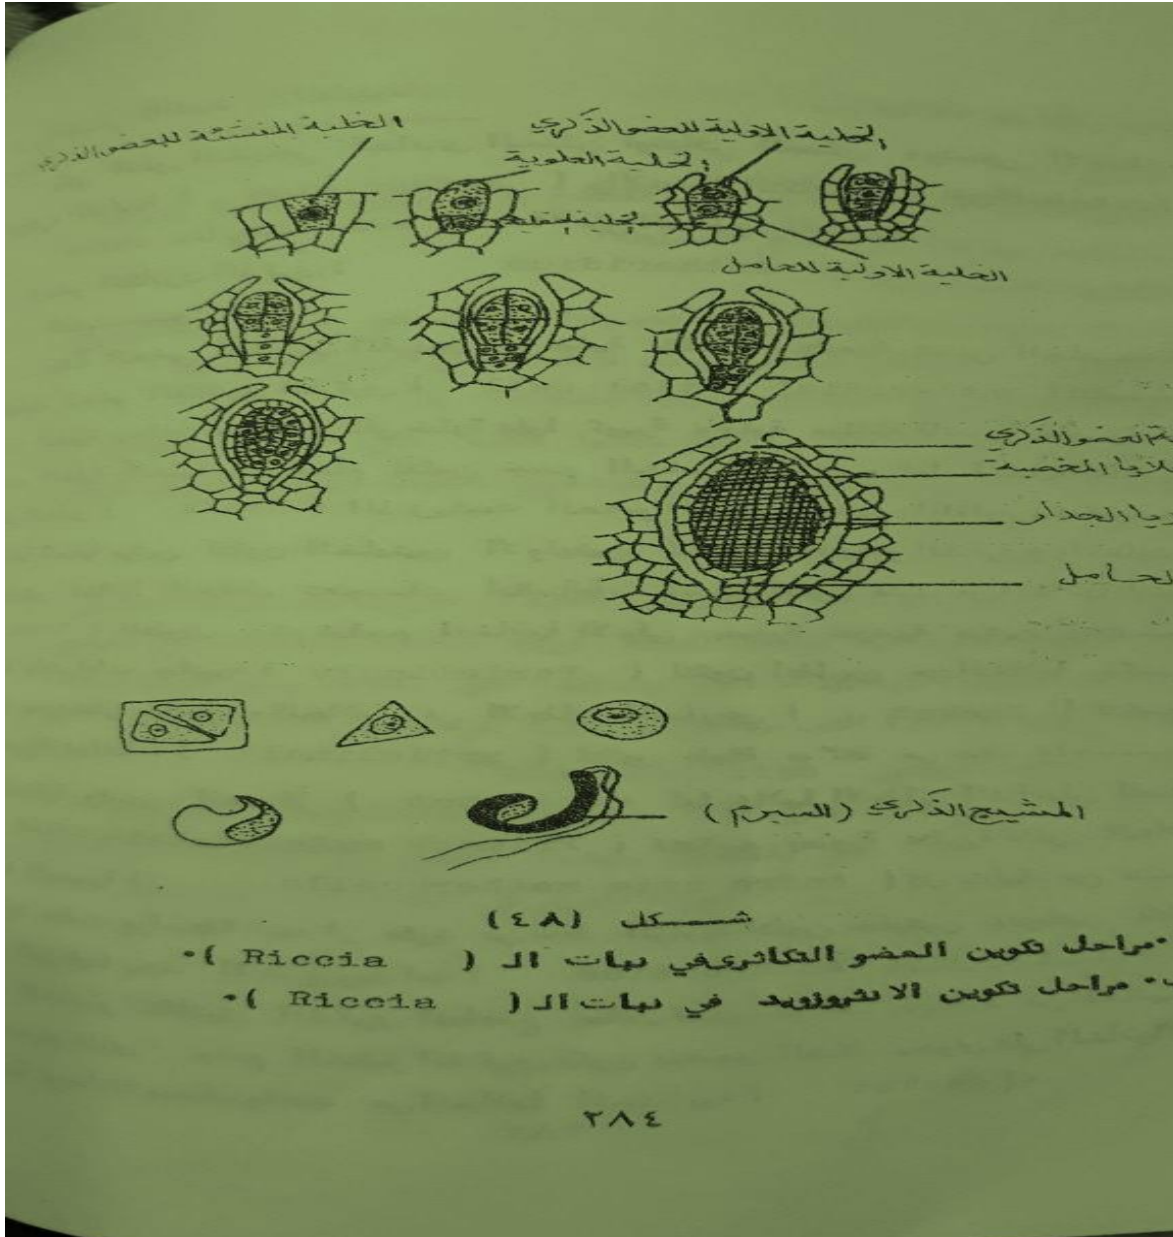 الخلية المنشئة للعضو الذكري
الخلية الاولية للعضو الذكري
الخلية العلوية
الخلية السفلية
الخلية الاولية للحامل
العضو الذكري
المخصبة
الجدار
الحامل
المشيج الذكري (السبرم)
شـــكل (٤٨)
مراحل تكوين العضو التكاثري في نبات الـ ( Riccia )٠
٠ مراحل تكوين الانثروزويد في نبات الـ ( Riccia )٠
٢٨٤